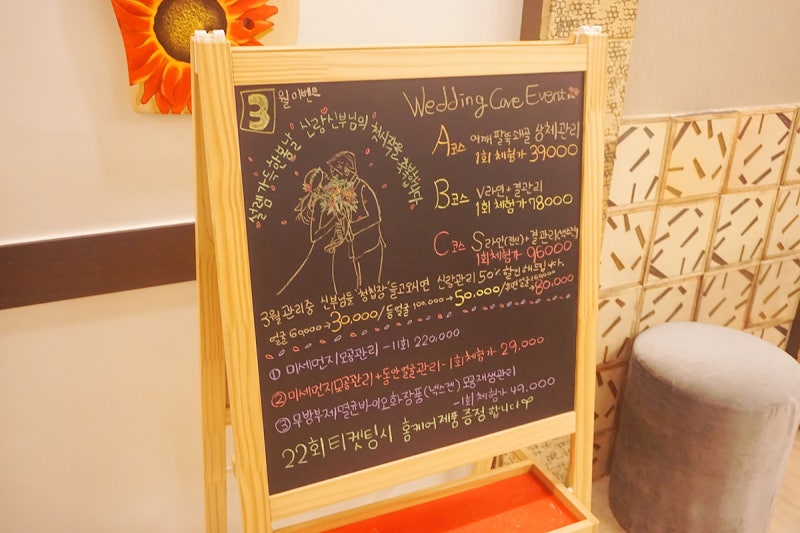 3월 이벤트
Wedding Care Event
설렘가득한봄날 신랑신부님의 첫시작을 축하합니다
A코스 어깨 팔뚝 쇄골 상체관리
1회 체험가 39000
B코스 V라인+결관리
1회 체험가 78000
C코스 S라인(전신)+결관리
1회체험가 96000
3월 관리중 신부님들 "청첩장" 들고오시면 신랑관리 50% 할인해드립니다.
얼굴 60,000→30,000/등얼굴 100,000→50,000/
→80,000
① 미세먼지모공관리 - 11회 220,000
② 미세먼지모공관리+동안얼굴관리-1회체험가 29,000
③ 무방부제멸균바이오화장품(넥스젠) 모공재생관리
-1회체험가 49,000
22회티켓팅시 홈케어제품 증정합니다